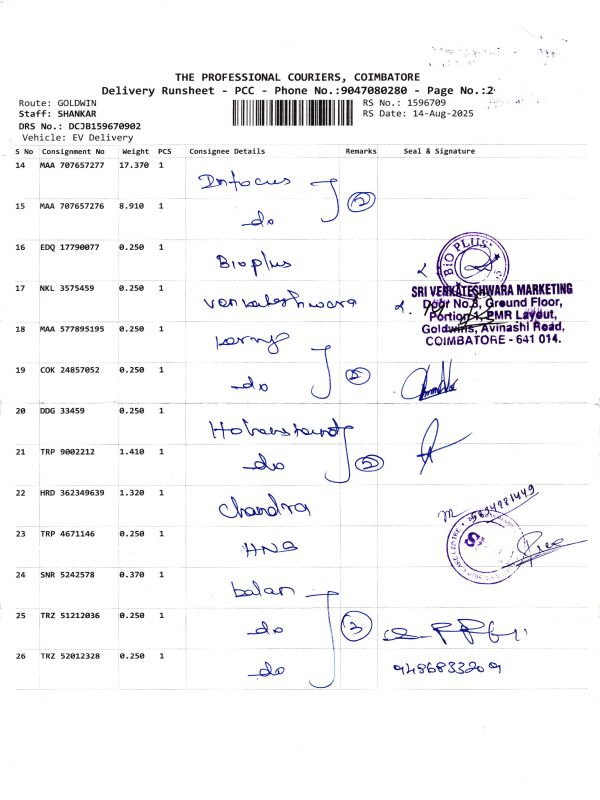 THE PROFESSIONAL COURIERS, COIMBATORE
Delivery Runsheet - PCC - Phone No.:9047080280 - Page No.:2
Route: GOLDWIN
RS No.: 1596709
Staff: SHANKAR
RS Date: 14-Aug-2025
DRS No.: DCJB159670902
Vehicle: EV Delivery
S No Consignment No Weight PCS Consignee Details Remarks Seal & Signature
14 MAA 707657277 17.370 1 Infocus
15 MAA 707657276 8.910 1 do 2
16 EDQ 17790077 0.250 1 Bioplus
BIO PLUS
17 NKL 3575459 0.250 1 Venkateshwara
SRI VENKATESHWARA MARKETING
Door No.8, Ground Floor,
Portion 1, PMR Layout,
Goldwins, Avinashi Road,
COIMBATORE - 641 014.
18 MAA 577895195 0.250 1
19 COK 24857052 0.250 1 do 2
20 DDG 33459 0.250 1
21 TRP 9002212 1.410 1 do 2
22 HRD 362349639 1.320 1 Chandra
23 TRP 4671146 0.250 1
24 SNR 5242578 0.370 1 balan
25 TRZ 51212036 0.250 1 do 3
26 TRZ 52012328 0.250 1 do 9486833209